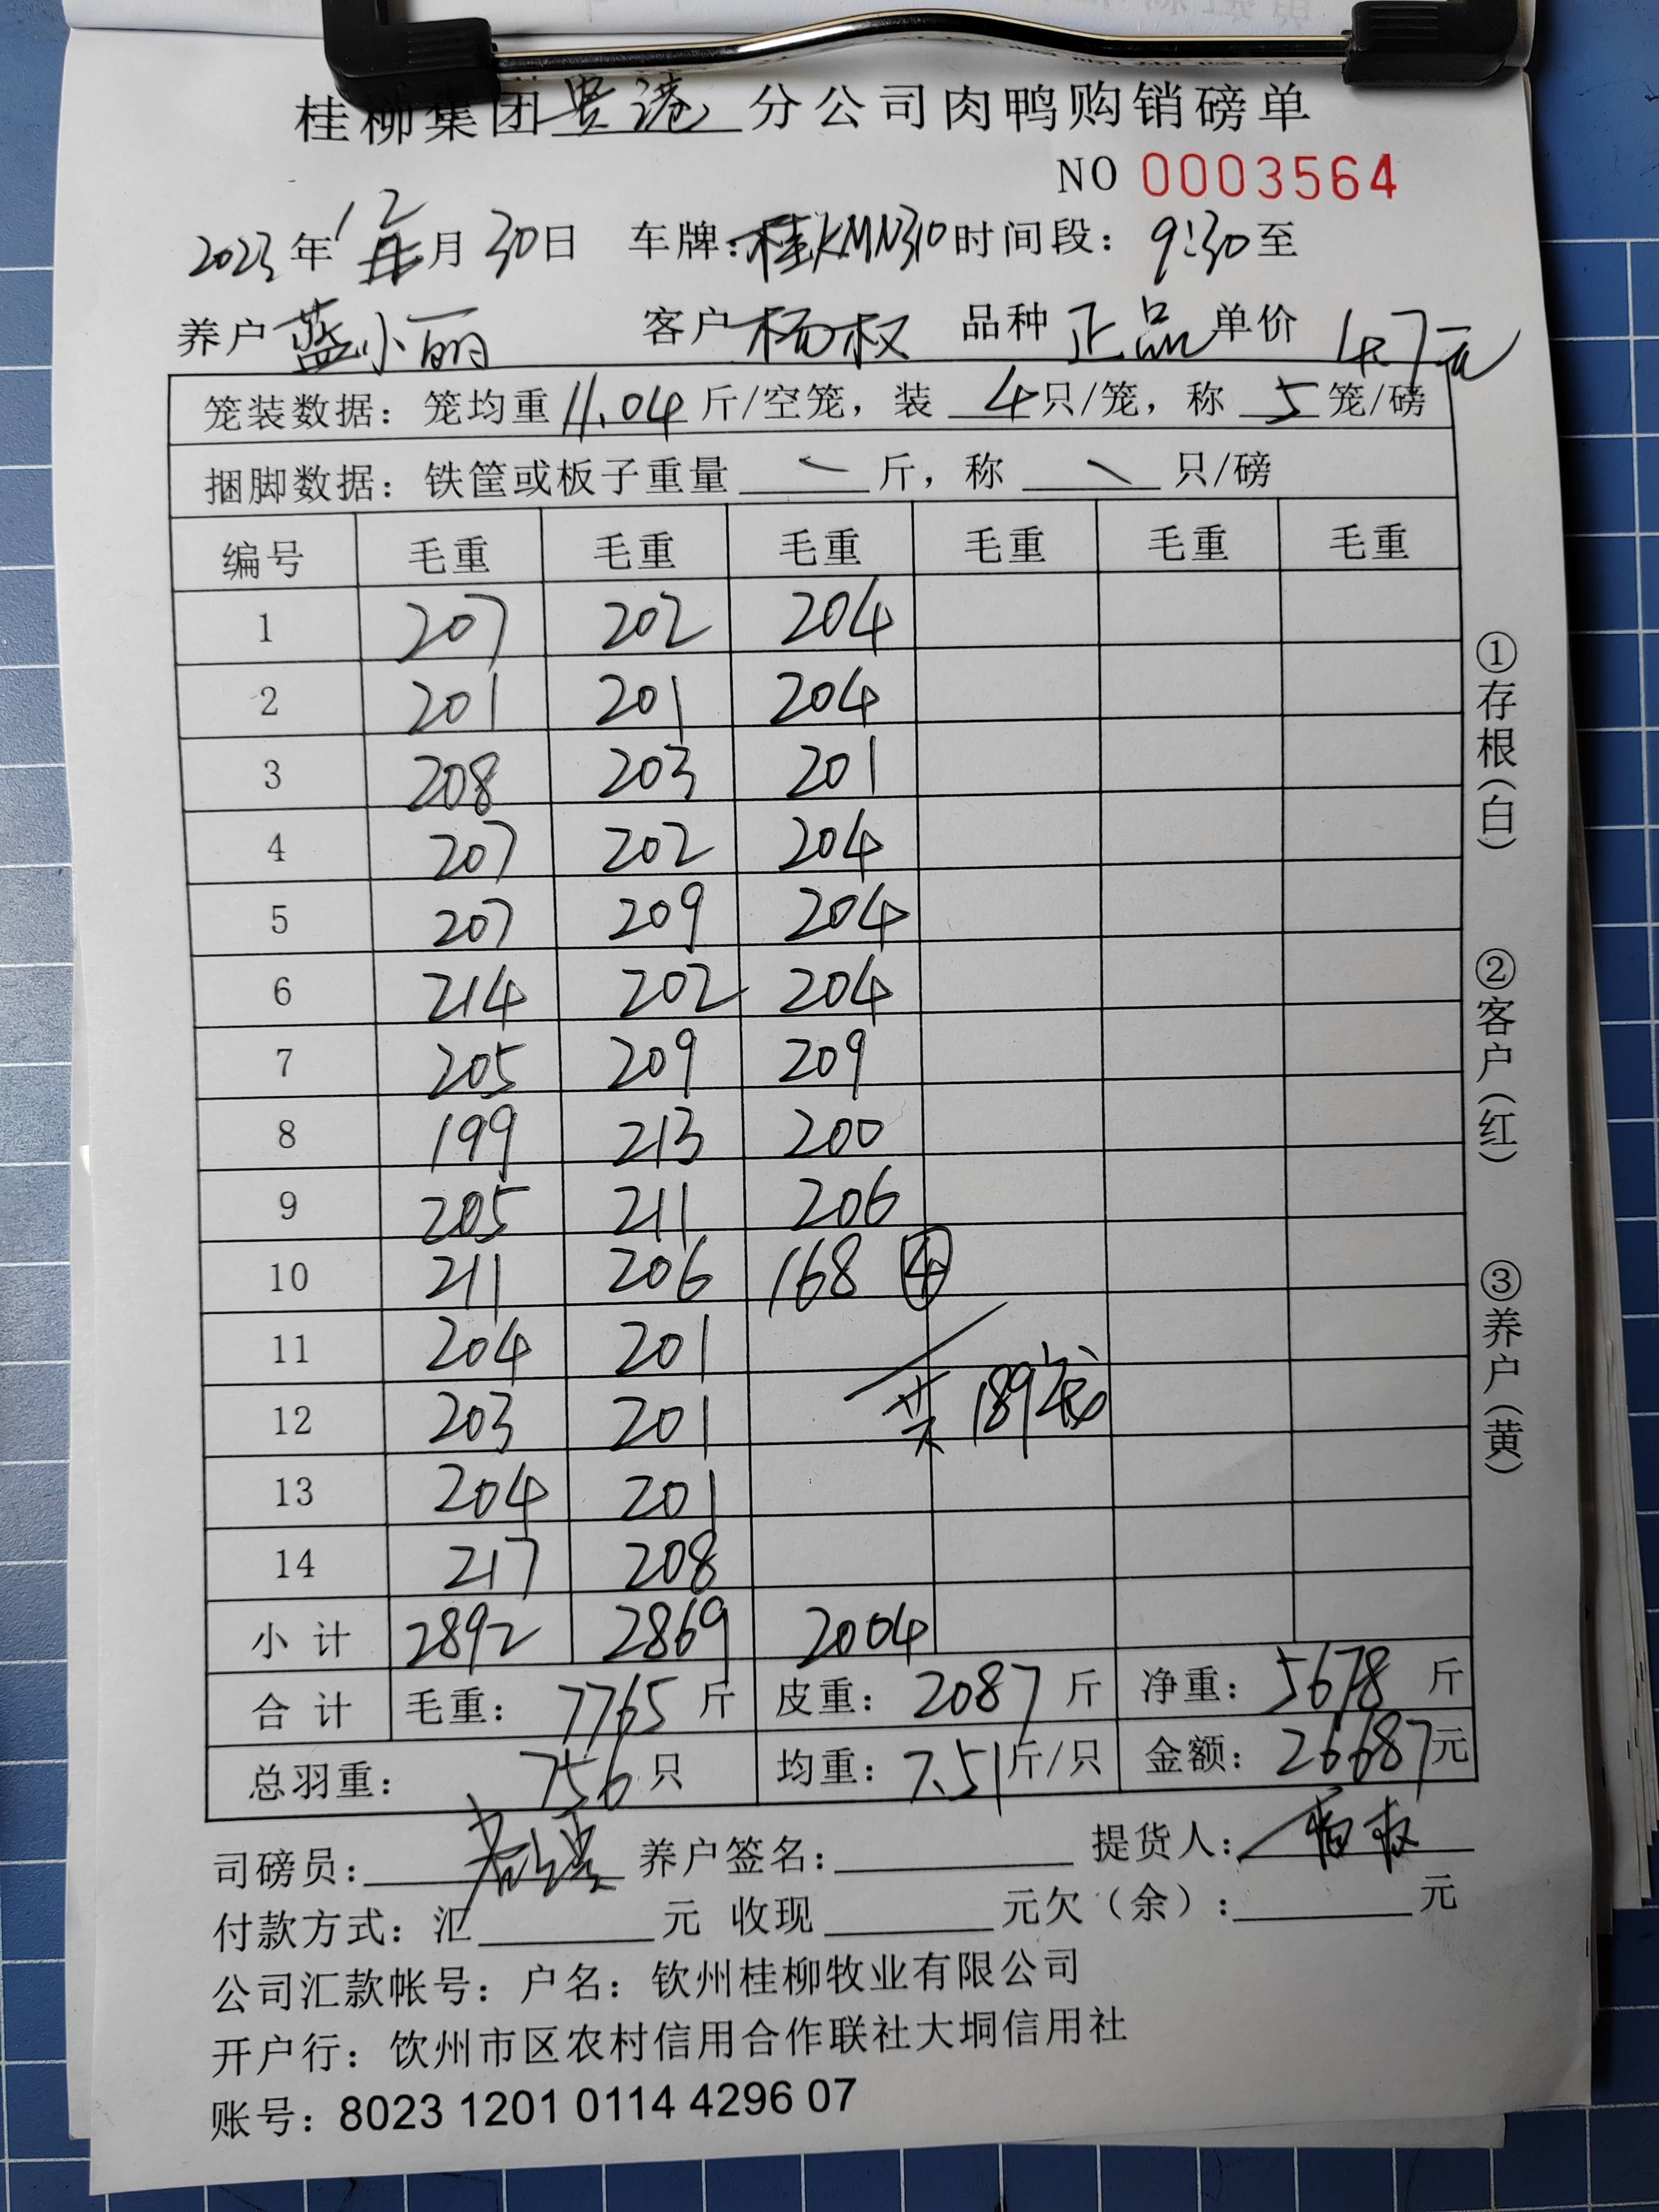 桂柳集团贵港分公司肉鸭购销磅单
NO 0003564
2023年12月30日 车牌:桂KMN310 时间段: 9:30至
养户 蓝小丽 客户 杨权 品种 正品 单价 4.7元
笼装数据: 笼均重 11.04 斤/空笼, 装 4 只/笼, 称 5 笼/磅
捆脚数据: 铁筐或板子重量 \ 斤, 称 \ 只/磅
编号 毛重 毛重 毛重 毛重 毛重 毛重
1 207 202 204
2 201 201 204
3 208 203 201
4 207 202 204
5 207 209 204
6 214 202 204
7 205 209 209
8 199 213 200
9 205 211 206
10 211 206 168 ④
11 204 201
12 203 201 共189笼
13 204 201
14 217 208
小计 2892 2869 2004
合计 毛重: 7765 斤 皮重: 2087 斤 净重: 5678 斤
总羽重: 756 只 均重: 7.51 斤/只 金额: 26687元
司磅员: 养户签名: 提货人:
付款方式: 汇 元 收现 元欠(余): 元
公司汇款帐号: 户名: 钦州桂柳牧业有限公司
开户行: 钦州市区农村信用合作联社大垌信用社
账号: 8023 1201 0114 4296 07
①存根(白)
②客户(红)
③养户(黄)